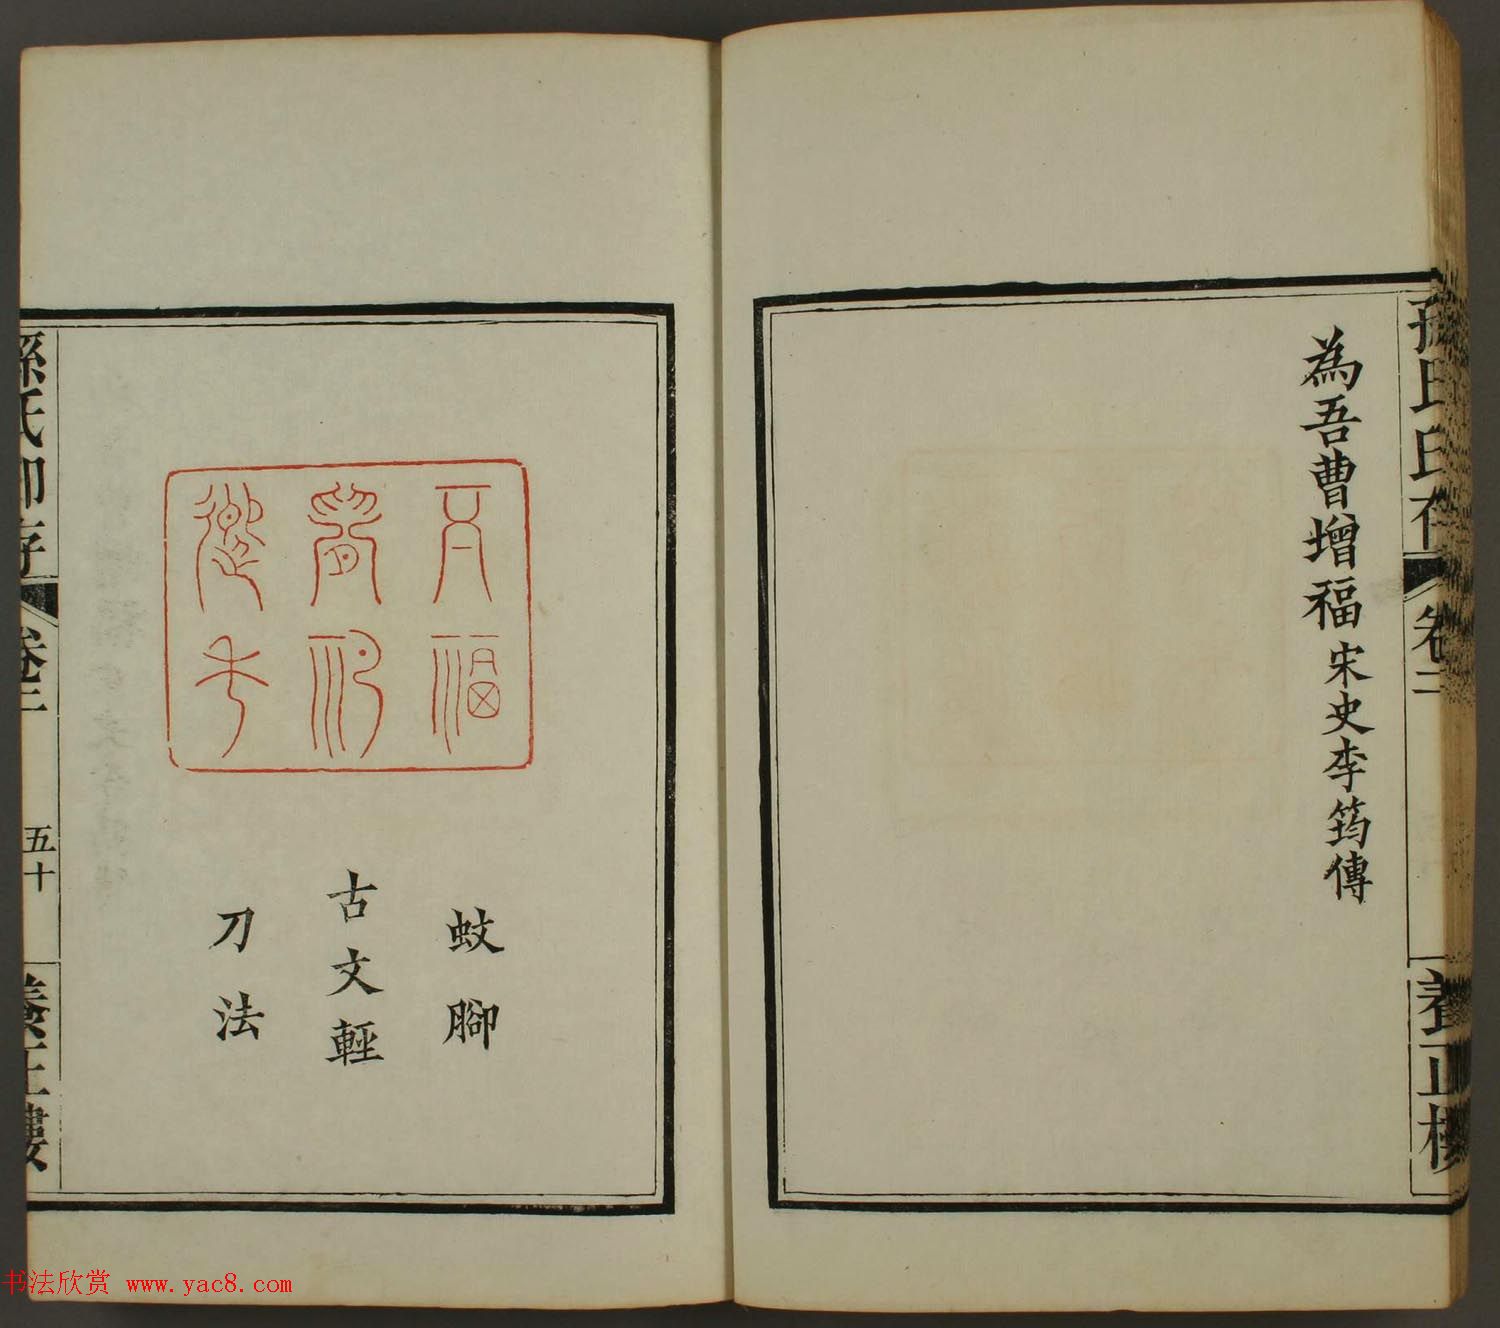 孫氏印存
卷二
養正樓
為吾曹增福宋史李筠傳
蚊腳
古文輕
刀法
孫氏印存
卷二
五十
養正樓
书法欣赏 www.yac8.com